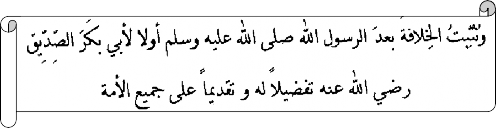 ونُثبِتُ الخِلافةَ بعدَ الرسول الله صلى الله عليه وسلم أولا لأبي بكرَ الصِّدِّيق
رضي الله عنه تفضيلاً له و تقديماً على جميع الأمة